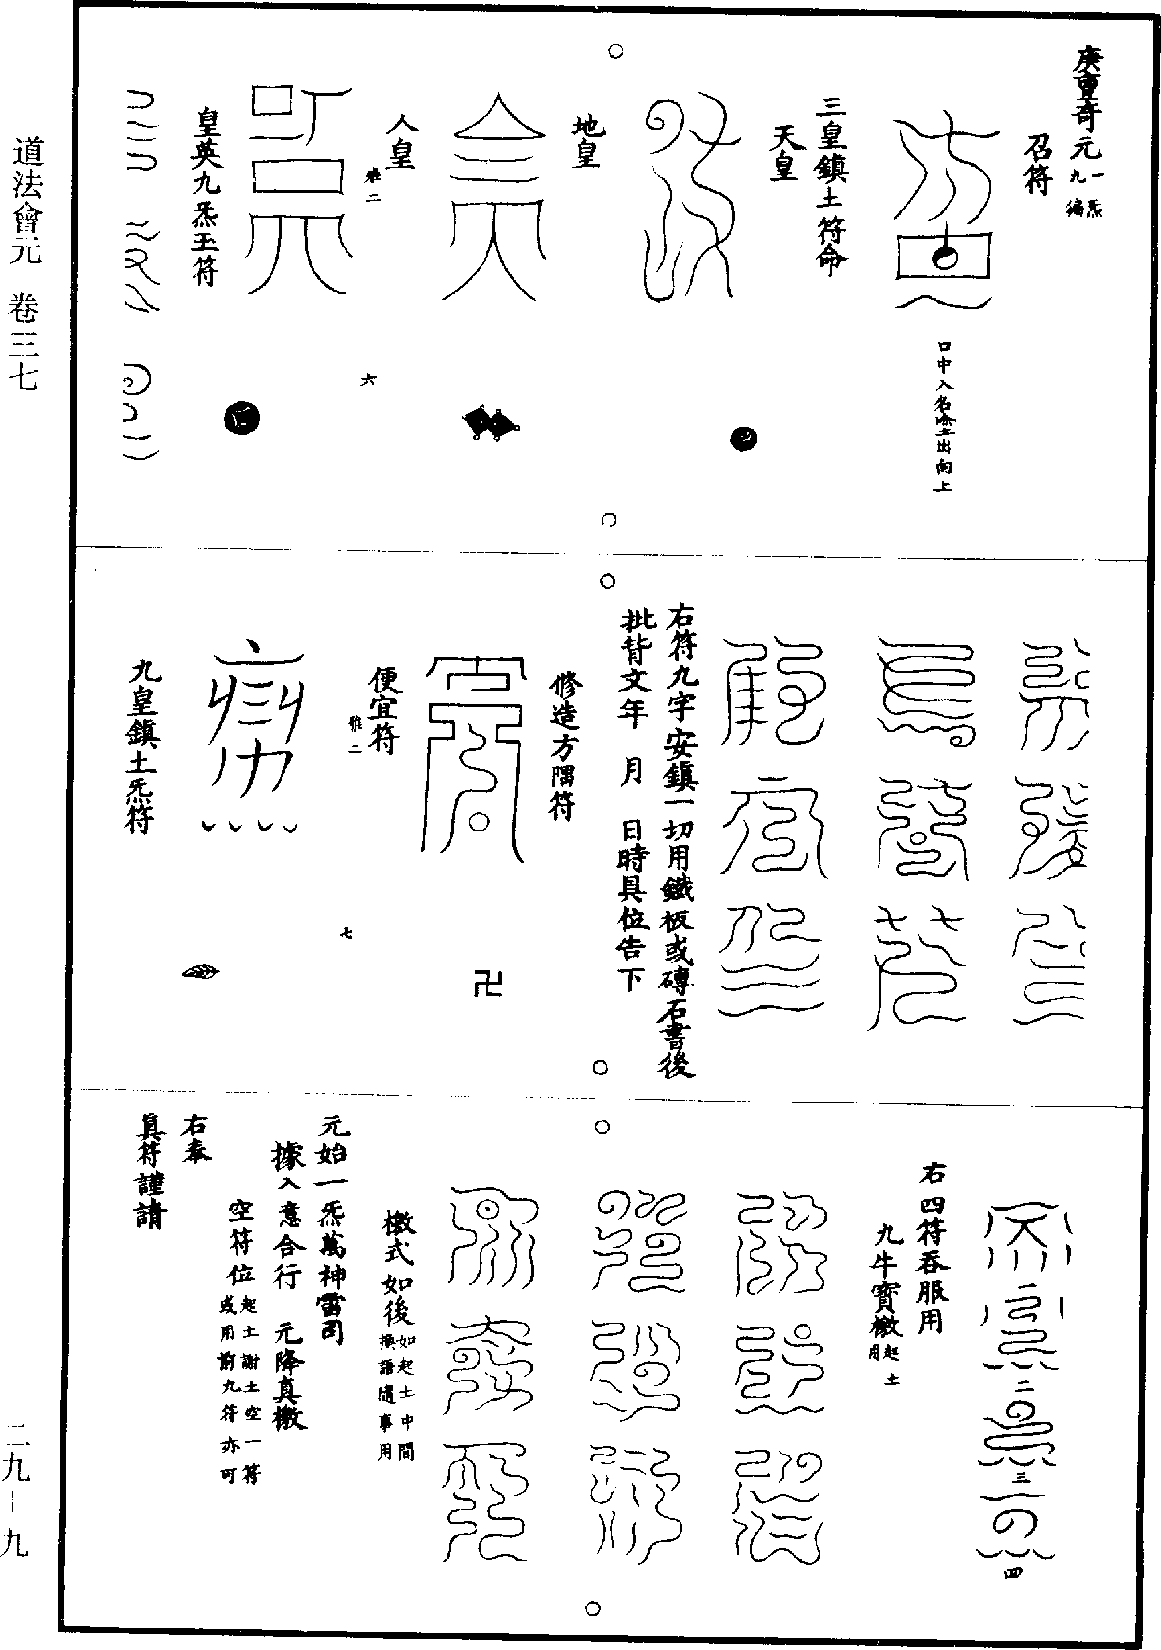 庚重奇元一炁九徧
召符
口中入名
出向上
三皇鎮土符命
天皇
地皇
人皇
雅二
六
皇英九炁玉符
右符九字安鎮一切用鐵板或磚石書後
批背文年　月　日時具位告下
修造方隅符
卍
便宜符
雅二
七
九皇鎮土炁符
二
三
四
右四符吞服用
九牛寶檄起土用
檄式如後如起土中間換語隨事用
元始一炁萬神雷司
據入意合行　元降真檄
空符位起土謝土空一符或用前九符亦可
右奉
真符謹請
道法會元　卷三七
二九－九